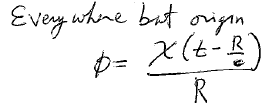 Everywhere but origin
ϕ = χ(t - R/c)/R